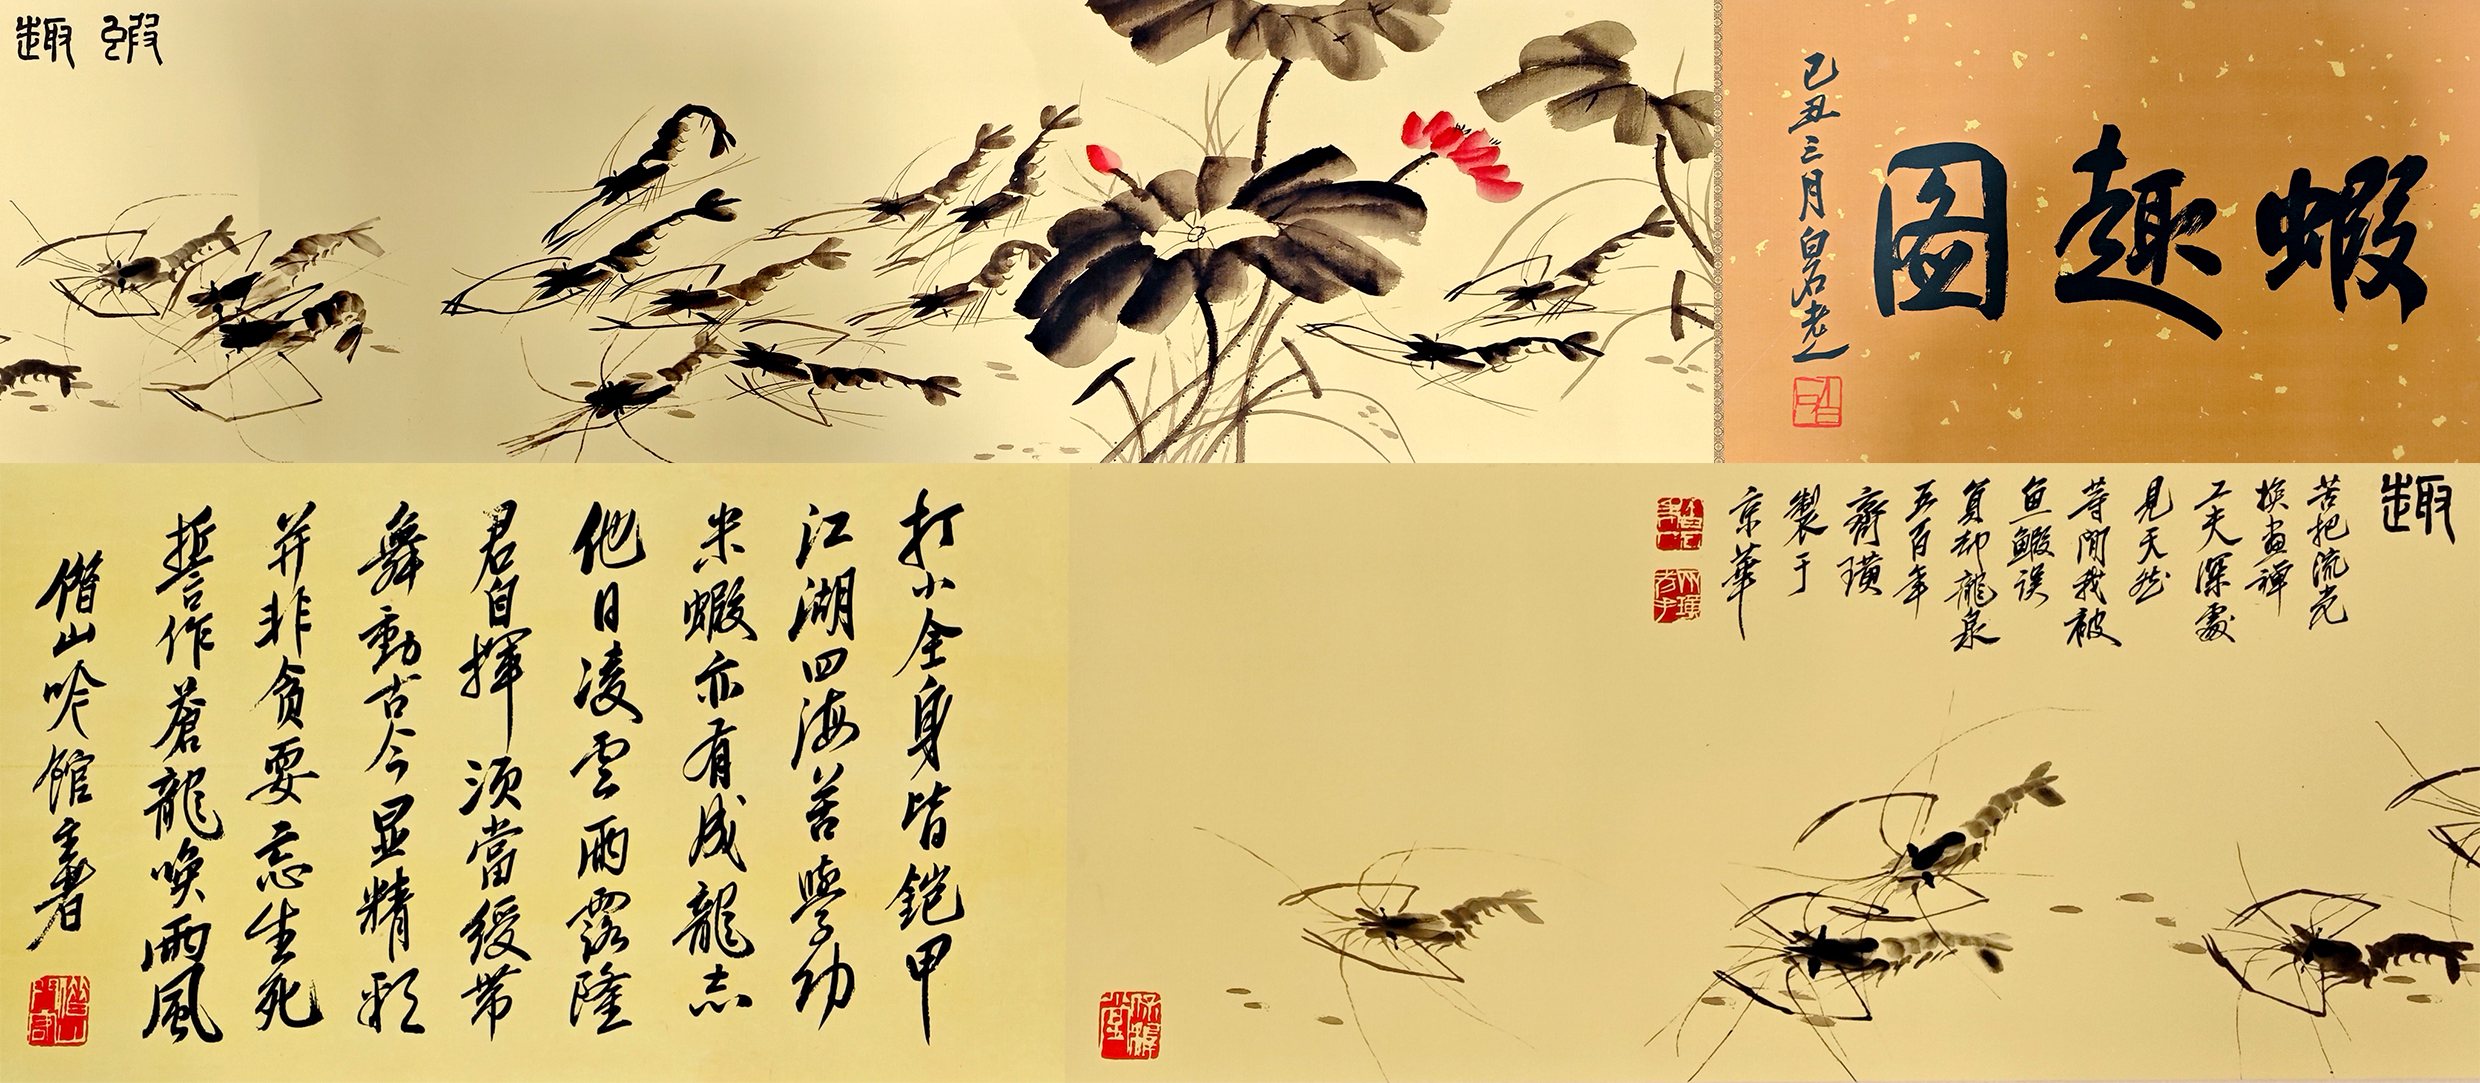 蝦趣圖
己丑三月白石老人
蝦趣
趣
苦把流光
換畫禪
工夫深處
見天然
等閒我被
魚鰕誤
負却龍泉
五百年
齊璜
製于
京華
打小全身皆鎧甲
江湖四海苦學功
米蝦亦有成龍志
他日凌雲雨露隆
君自揮須當綬帶
舞動古今显精彩
并非貪耍忘生死
誓作蒼龍喚雨風
僭山吟館主者